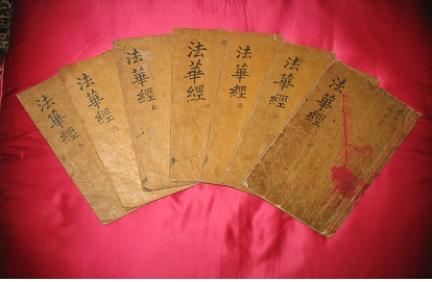 法華經
法華經 六
法華經 五
法華經
法華經 三
法華經 二
法華經